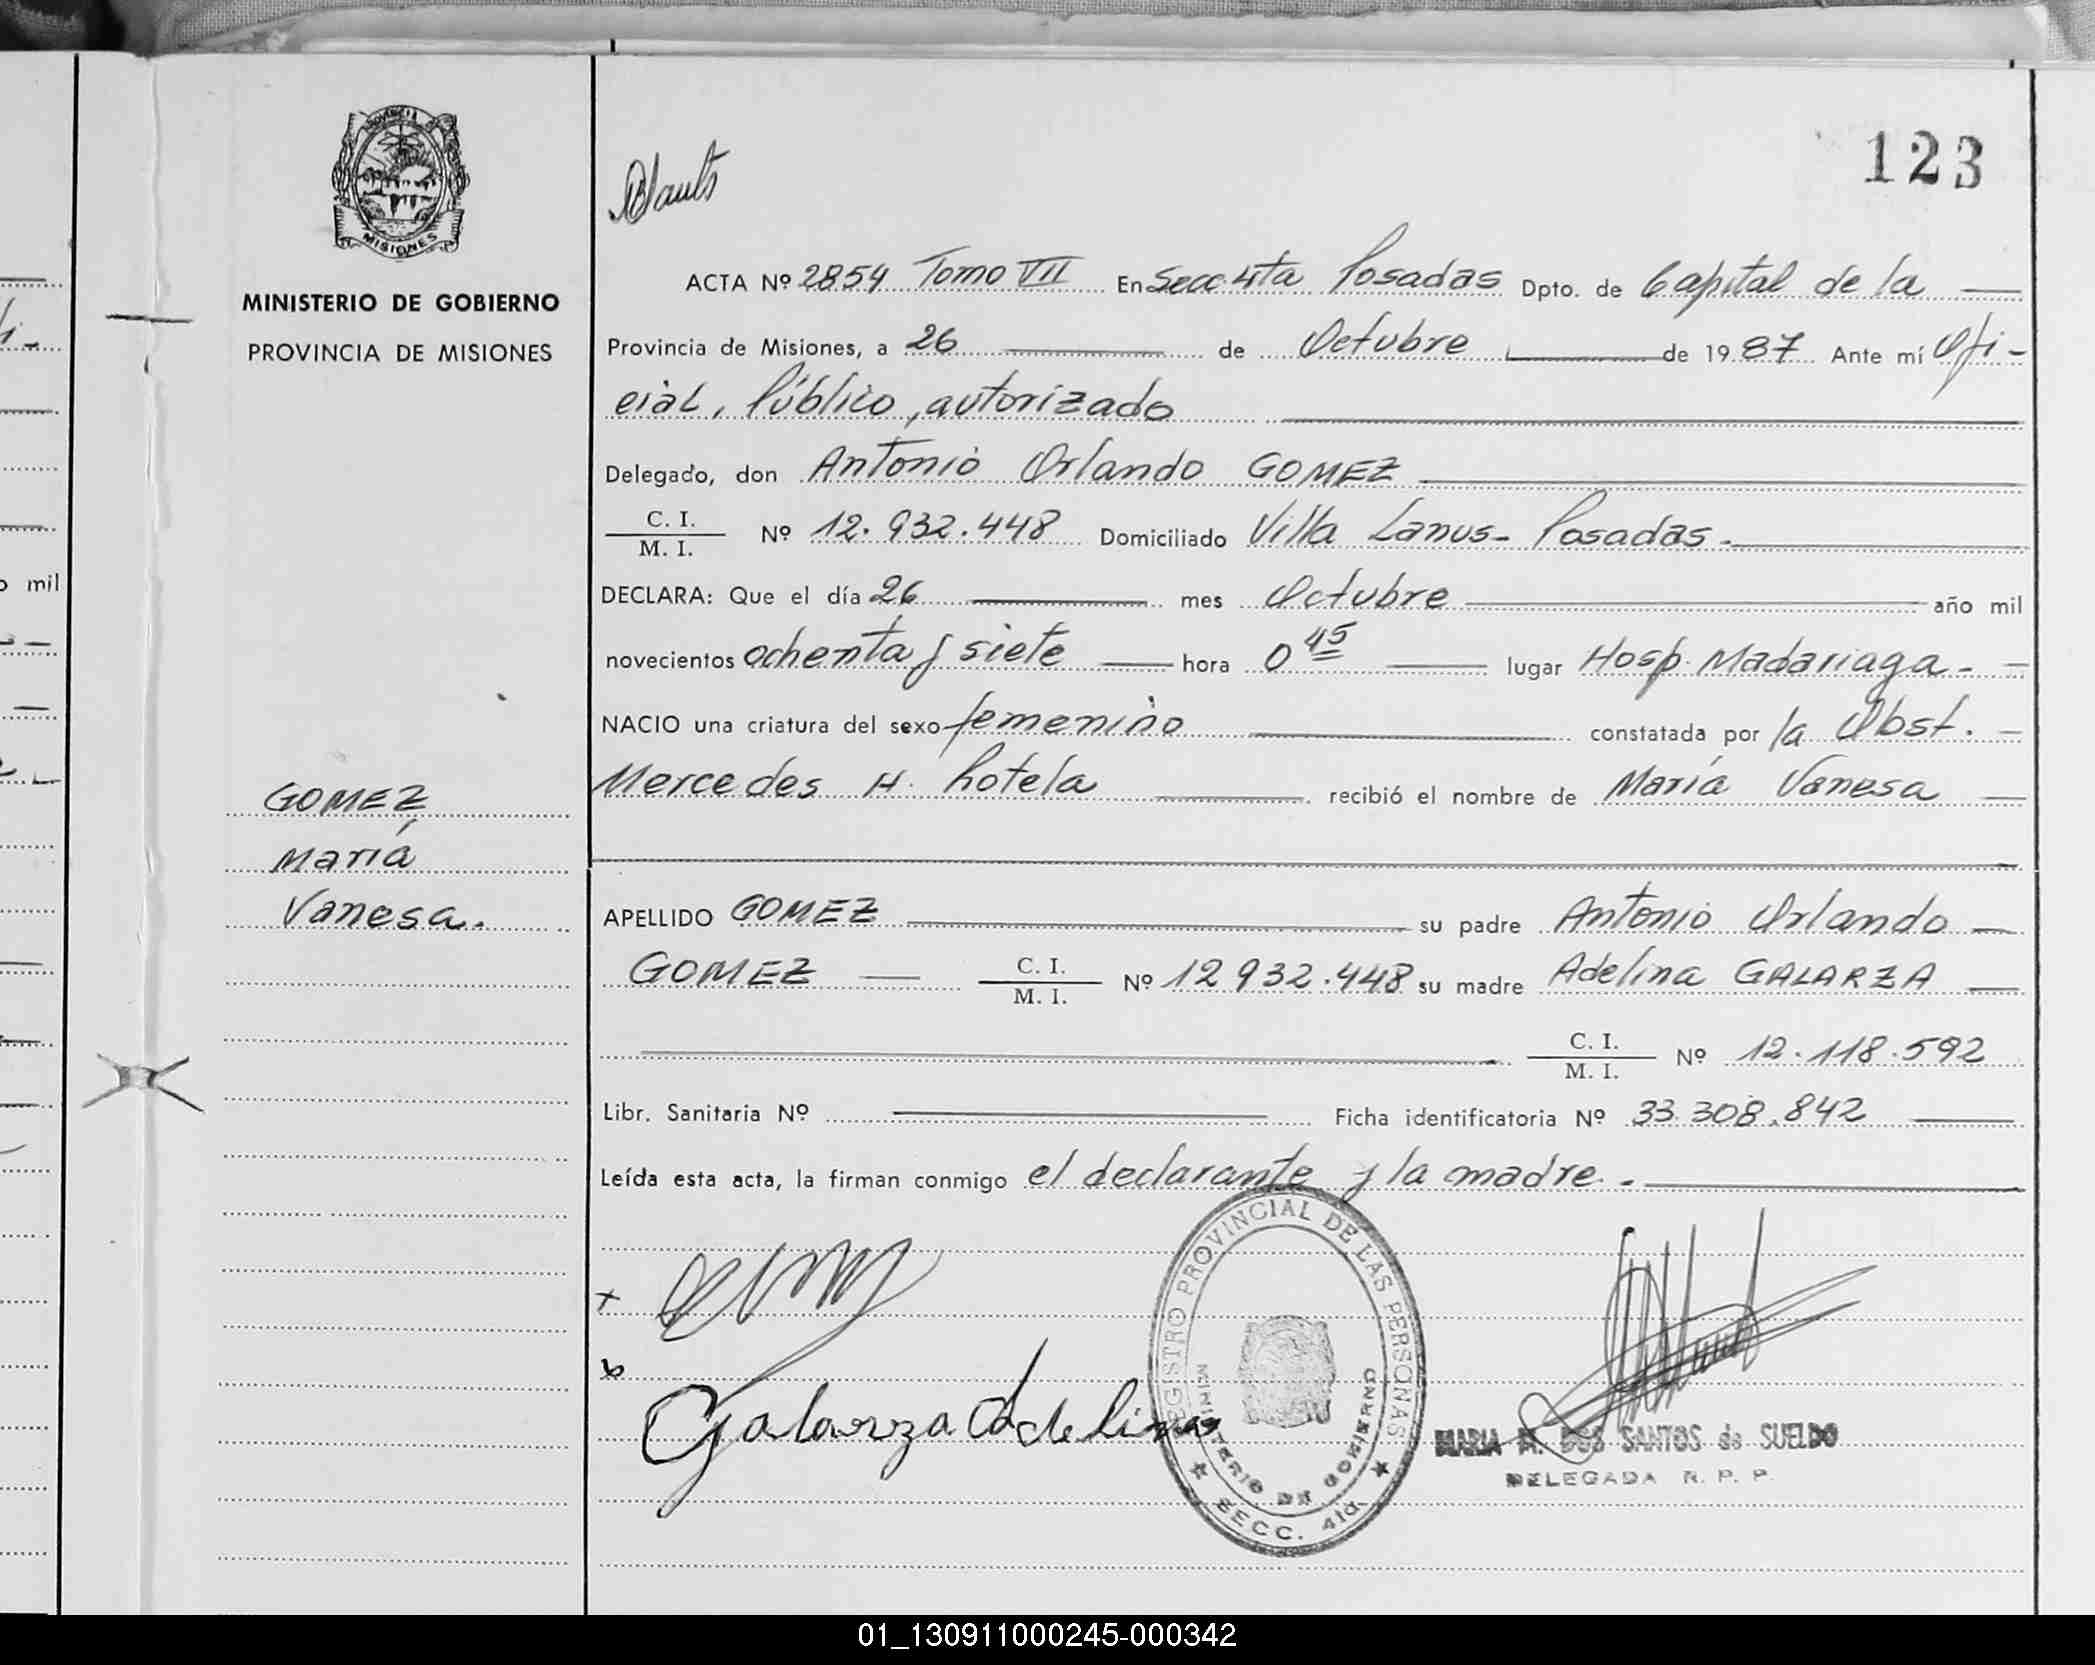 123
PROVINCIA DE
MISIONES
MINISTERIO DE GOBIERNO
PROVINCIA DE MISIONES
GOMEZ
María
Vanesa.
ACTA Nº 2854 Tomo VII En Secc 4ta Posadas Dpto. de Capital de la
Provincia de Misiones, a 26 de Octubre de 1987 Ante mí Ofi-
cial, Público, autorizado
Delegado, don Antonio Orlando GOMEZ
C. I.
M. I. Nº 12.932.448 Domiciliado Villa Lanus- Posadas.
DECLARA: Que el día 26 mes Octubre año mil
novecientos ochenta y siete hora 0 45 lugar Hosp. Madariaga-
NACIO una criatura del sexo femenino constatada por la Obst.
Mercedes H. Rotela recibió el nombre de María Vanesa
APELLIDO GOMEZ su padre Antonio Orlando
GOMEZ C. I.
M. I. Nº 12 932.448 su madre Adelina GALARZA
C. I.
M. I. Nº 12.118.592
Libr. Sanitaria Nº Ficha identificatoria Nº 33.308.842
Leída esta acta, la firman conmigo el declarante y la madre.
Galarza Adelina
REGISTRO PROVINCIAL DE LAS PERSONAS
MINISTERIO DE GOBIERNO
SECC. 4ta.
MARIA M. DOS SANTOS de SUELDO
DELEGADA R. P. P.
o mil
01_130911000245-000342